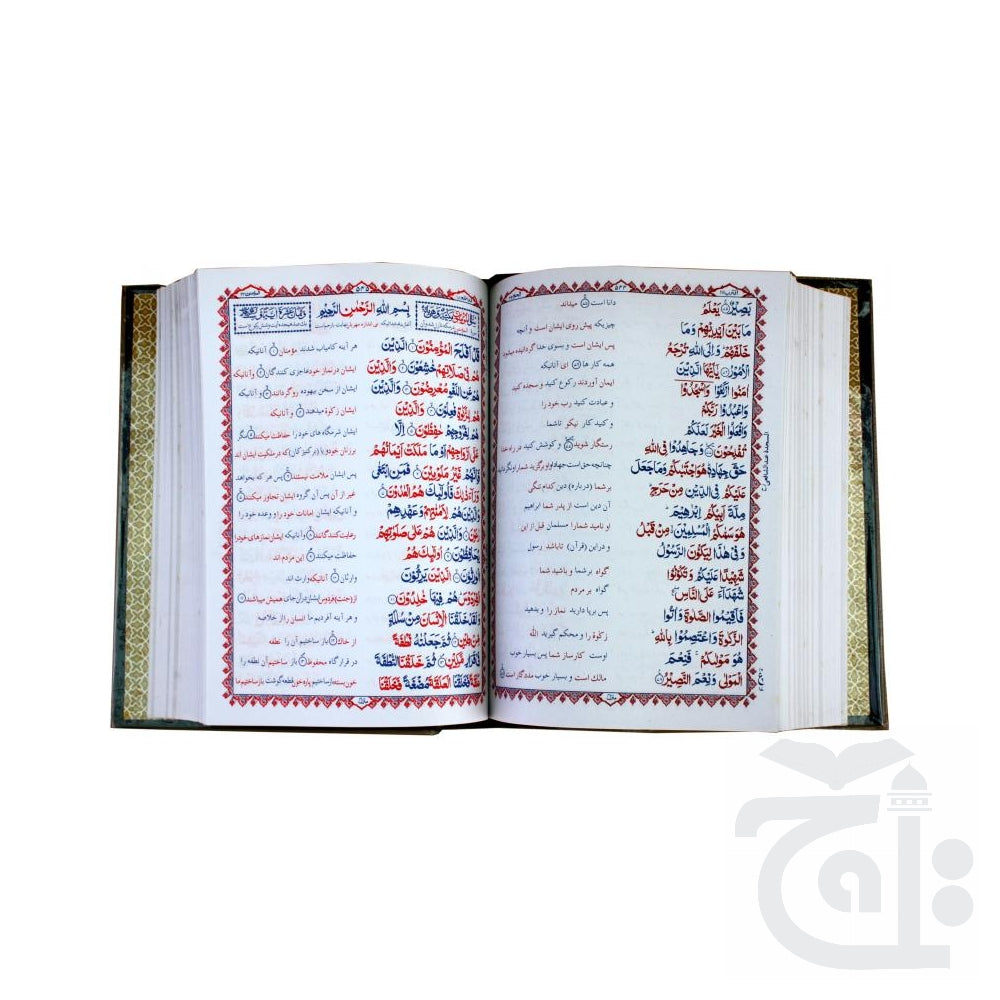 اقترب ۱۷
۵۴۴
الحج ۲۲
بَصِيْرٌ ۝ يَعْلَمُ
دانا است ۝ میداند
مَا بَيْنَ اَيْدِيْهِمْ وَمَا
چیزیکه پیش روی ایشان است و آنچه
خَلْفَهُمْ ؕ وَاِلَى اللهِ تُرْجَعُ
پس ایشان است و بسوی خدا گردانیده میشود
الْاُمُوْرُ ۝ يٰۤاَيُّهَا الَّذِيْنَ
همه کار ها ۝ ای آنانیکه
اٰمَنُوا ارْكَعُوْا وَاسْجُدُوْا
ایمان آوردند رکوع کنید و سجده کنید
وَاعْبُدُوْا رَبَّكُمْ
و عبادت کنید رب خود را
وَافْعَلُوا الْخَيْرَ لَعَلَّكُمْ
و کنید کار نیکو تاشما
تُفْلِحُوْنَ ۝ وَجَاهِدُوْا فِى اللهِ
رستگار شوید ۝ و کوشش کنید در راه خدا
حَقَّ جِهَادِهٖ ؕ هُوَ اجْتَبٰىكُمْ وَمَا جَعَلَ
چنانچه حق است جهاد او او برگزید شما را و نگردانید
عَلَيْكُمْ فِى الدِّيْنِ مِنْ حَرَجٍ ؕ
برشما (درباره) دین کدام تنگی
مِلَّةَ اَبِيْكُمْ اِبْرٰهِيْمَ ؕ
آن دین است از پدر شما ابراهیم
هُوَ سَمّٰىكُمُ الْمُسْلِمِيْنَ ۙ مِنْ قَبْلُ
او نامید شمارا مسلمان قبل از این
وَفِىْ هٰذَا لِيَكُوْنَ الرَّسُوْلُ
و دراین (قرآن) تاباشد رسول
شَهِيْدًا عَلَيْكُمْ وَتَكُوْنُوْا
گواه برشما و باشید شما
شُهَدَآءَ عَلَى النَّاسِ ۖ
گواه بر مردم
فَاَقِيْمُوا الصَّلٰوةَ وَاٰتُوا
پس برپا دارید نماز را و بدهید
الزَّكٰوةَ وَاعْتَصِمُوْا بِاللهِ ؕ
زکوة را و محکم گیرید الله
هُوَ مَوْلٰىكُمْ ۚ فَنِعْمَ
اوست کارساز شما پس بسیار خوب
الْمَوْلٰى وَنِعْمَ النَّصِيْرُ ۝
مالک است و بسیار خوب مددگار است ۝
منزل۴
۵۴۵
المؤمنون ۲۳
بِسْمِ اللهِ الرَّحْمٰنِ الرَّحِيْمِ
قَدْ اَفْلَحَ الْمُؤْمِنُوْنَ ۝ الَّذِيْنَ
هر آینه کامیاب شدند مؤمنان ۝ آنانیکه
هُمْ فِىْ صَلَاتِهِمْ خٰشِعُوْنَ ۝ وَالَّذِيْنَ
ایشان درنماز خود عاجزی کنندگان ۝ وآنانیکه
هُمْ عَنِ اللَّغْوِ مُعْرِضُوْنَ ۝ وَالَّذِيْنَ
ایشان از سخن بیهوده روگردانند ۝ و آنانیکه
هُمْ لِلزَّكٰوةِ فٰعِلُوْنَ ۝ وَالَّذِيْنَ
ایشان زکوة میدهند ۝ و آنانیکه
هُمْ لِفُرُوْجِهِمْ حٰفِظُوْنَ ۝ اِلَّا
ایشان شرمگاه های خود را حفاظت میکنند ۝ مگر
عَلٰٓى اَزْوَاجِهِمْ اَوْ مَا مَلَكَتْ اَيْمَانُهُمْ
برزنان خود و یا (بر کنیزکان) که درملکیت ایشان اند
فَاِنَّهُمْ غَيْرُ مَلُوْمِيْنَ ۝ فَمَنِ ابْتَغٰى
پس ایشان ملامت نیستند ۝ پس هر که بخواهد
وَرَآءَ ذٰلِكَ فَاُولٰٓئِكَ هُمُ الْعٰدُوْنَ ۝
غیر از آن پس آن گروه ایشان تجاوز میکنند ۝
وَالَّذِيْنَ هُمْ لِاَمٰنٰتِهِمْ وَعَهْدِهِمْ
و آنانیکه ایشان امانات خود را و وعده خود را
رٰعُوْنَ ۝ وَالَّذِيْنَ هُمْ عَلٰى صَلَوٰتِهِمْ
رعایت کنندگانند ۝ وآنانیکه ایشان نمازهای خودرا
يُحَافِظُوْنَ ۝ اُولٰٓئِكَ هُمُ
حفاظت میکنند ۝
الْوٰرِثُوْنَ ۝ الَّذِيْنَ يَرِثُوْنَ
وارثان ۝ آنانیکه وارث اند
الْفِرْدَوْسَ ؕ هُمْ فِيْهَا خٰلِدُوْنَ ۝
از (جنت) فردوس ایشان در آن جای همیش میباشند ۝
وَلَقَدْ خَلَقْنَا الْاِنْسَانَ مِنْ سُلٰلَةٍ
و هر آینه آفریدیم ما انسان را از خلاصه
مِّنْ طِيْنٍ ۝ ثُمَّ جَعَلْنٰهُ نُطْفَةً
از خاک ۝ باز ساختیم آن را نطفه
فِىْ قَرَارٍ مَّكِيْنٍ ۝ ثُمَّ خَلَقْنَا النُّطْفَةَ
در قرارگاه محفوظ ۝ باز ساختیم آن نطفه را
عَلَقَةً فَخَلَقْنَا الْعَلَقَةَ مُضْغَةً فَخَلَقْنَا
خون بسته باز ساختیم پاره خون قطعه گوشت باز ساختیم ما
منزل۴
تاج